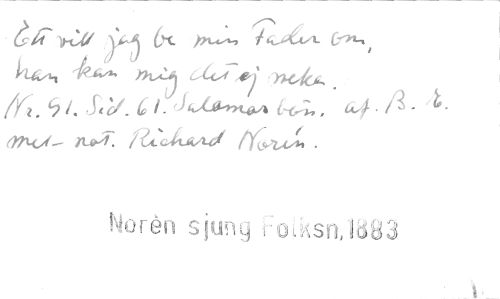 Ett vill jag be min Fader om,
han kan mig det ej neka.
Nr. 91. Sid. 61. Salomos bön. af. B. E.
met- not. Richard Norén.
Norèn sjung Folksn,1883